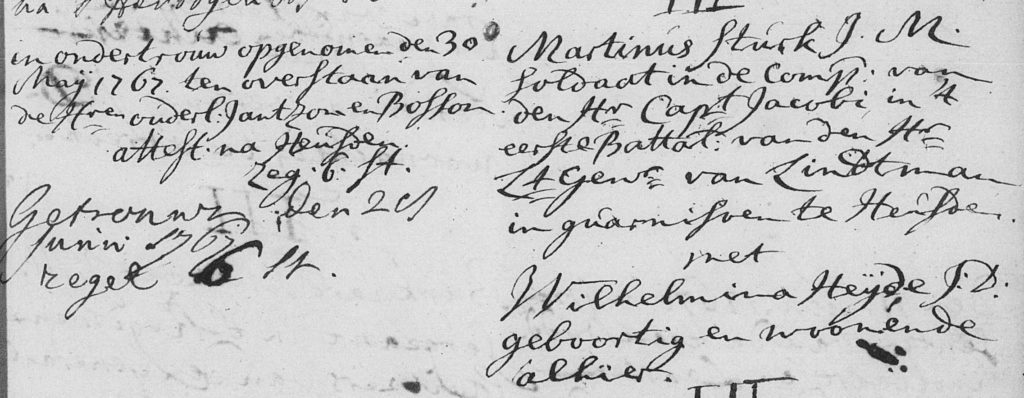 in ondertrouw opgenomen den 30
Maij 1767 ten overstaan van
de Hren ouderl: Jantzon en Bosson
attest: na Heusde
Zeg. 6. St.
Getrouwt den 21
Junii 1767
zegel 6 St.
Martinus Sturk J. M.
soldaat in de Comp: van
den Hr Capt Jacobi in 't
eerste Battal: van den Hr
Lt Genr van Lindtman
in guarnisoen te Heusden.
met
Wilhelmina Heijde J. D.
geboortig en woonende
alhier.